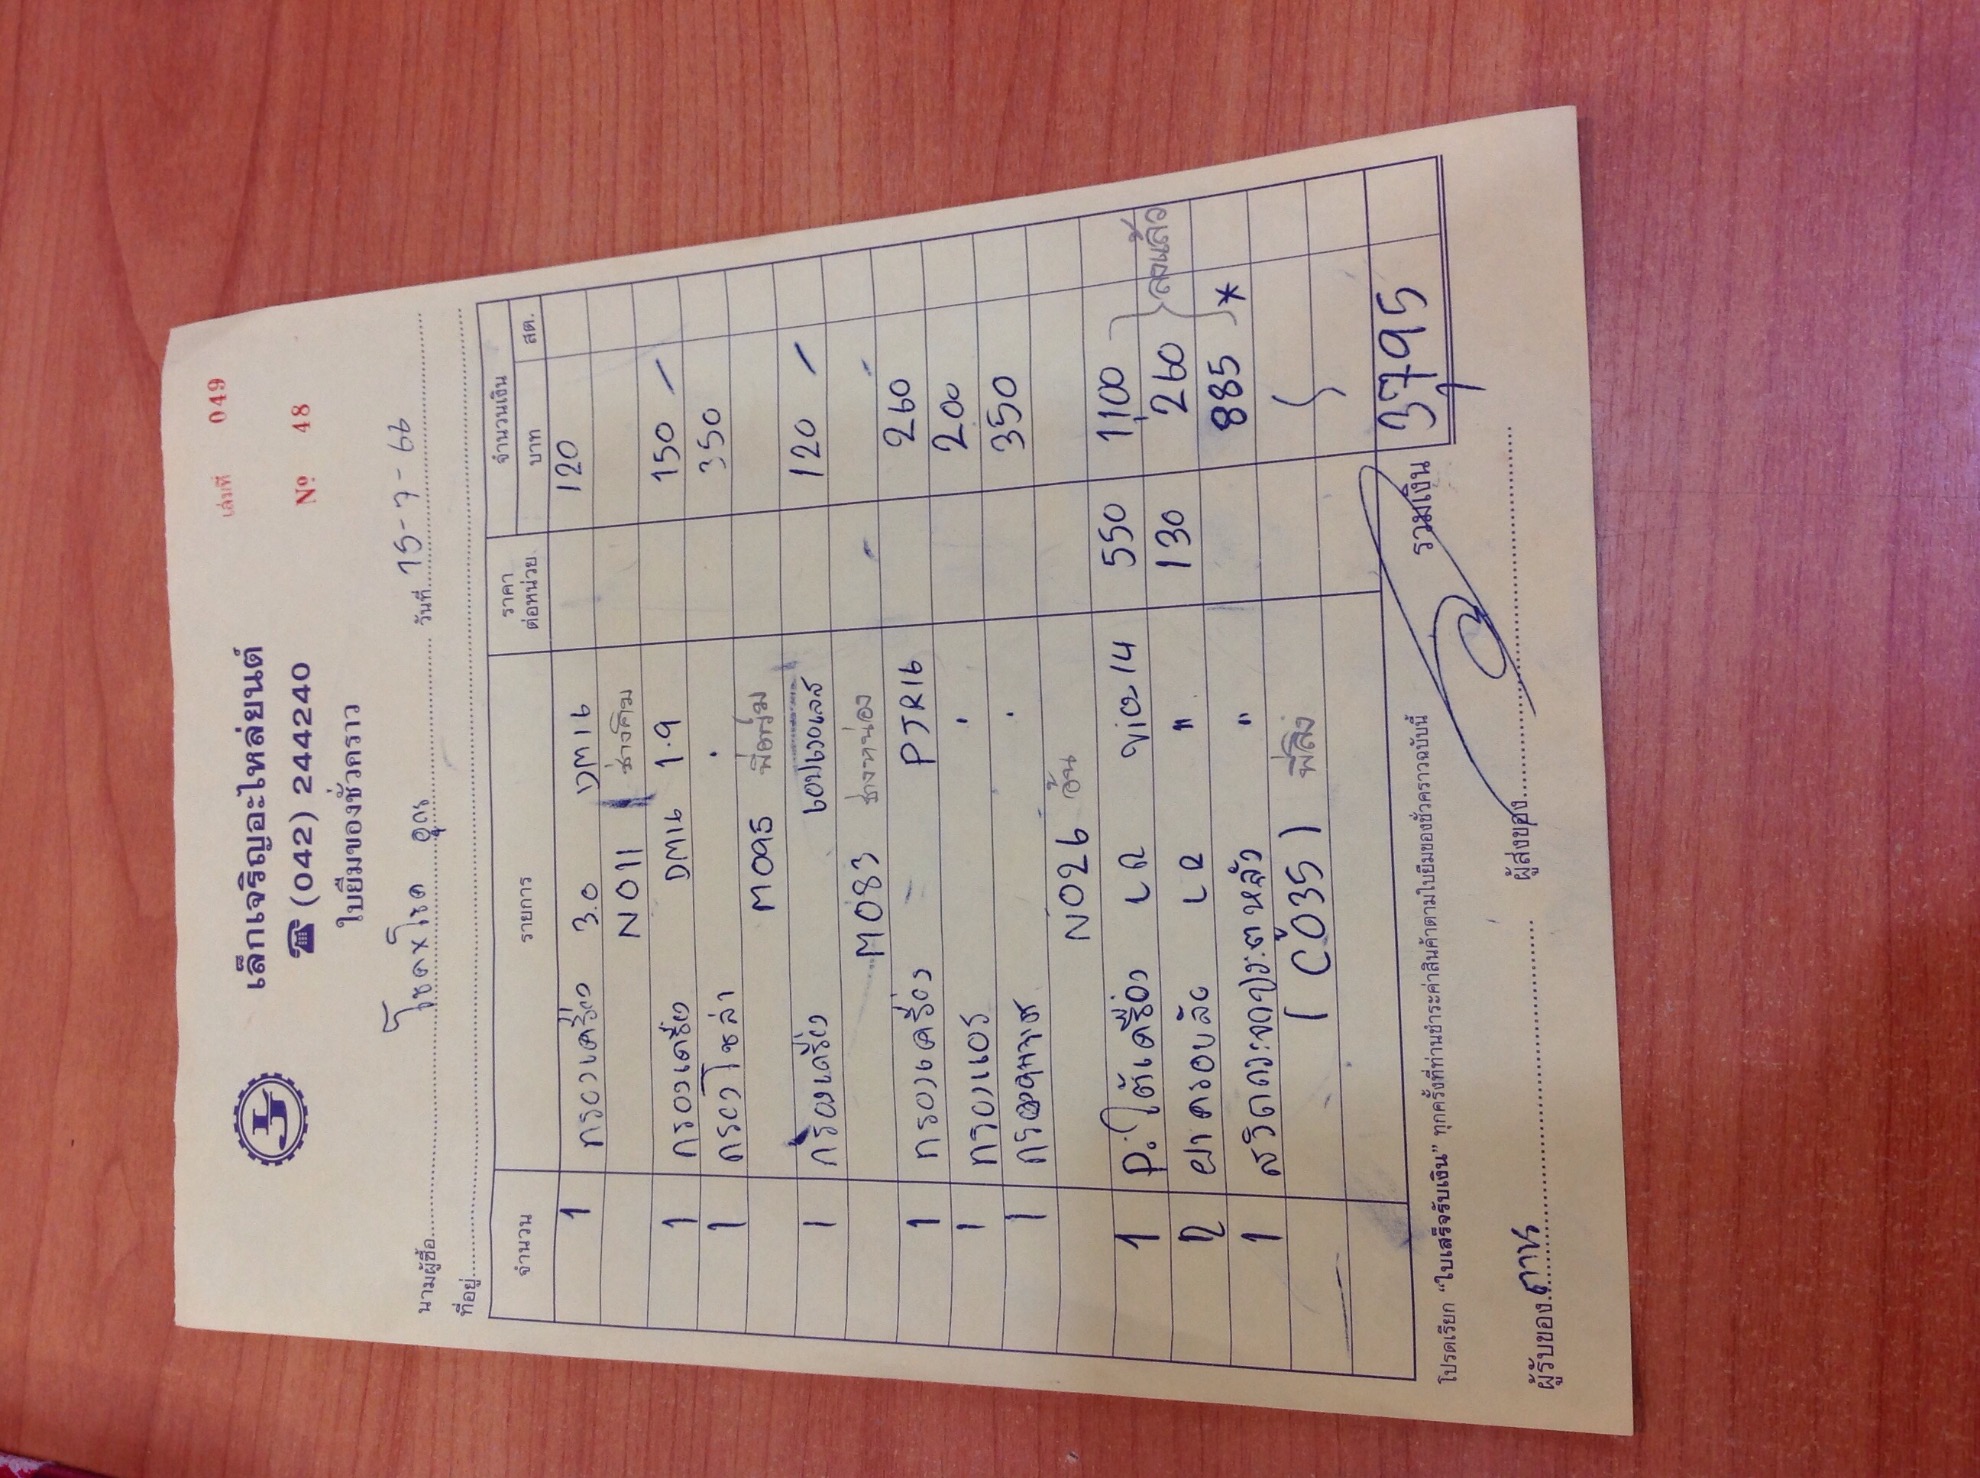 เล่มที่ 049
เล็กเจริญอะไหล่ยนต์
☎ (042) 244240
Nº 48
ใบยืมของชั่วคราว
นามผู้ซื้อ โชคxโชค อุดร วันที่ 15-7-66
ที่อยู่
จำนวน รายการ ราคาต่อหน่วย จำนวนเงิน
บาท สต.
1 กรองเครื่อง 3.0 DM16 120
N011 ช่างคิม
1 กรองเครื่อง DM16 1.9 150 -
1 กรองโซล่า " 350
M095
1 กรองเครื่อง 120 -
M083 ช่างหน่อง
1 กรองเครื่อง PJR16 260
1 กรองแอร์ " 200
1 กรองอากาศ " 350
N026 อ้น
1 P. ใต้เครื่อง LR vio14 550 1,100
2 ยางครอบลัง LR " 130 260 ลงแล้ว
1 " 885 *
(C035)
รวมเงิน 3795
โปรดเรียก "ใบเสร็จรับเงิน" ทุกครั้งที่ท่านชำระค่าสินค้าตามใบยืมของชั่วคราวฉบับนี้
ผู้รับของ ผู้ส่งของ